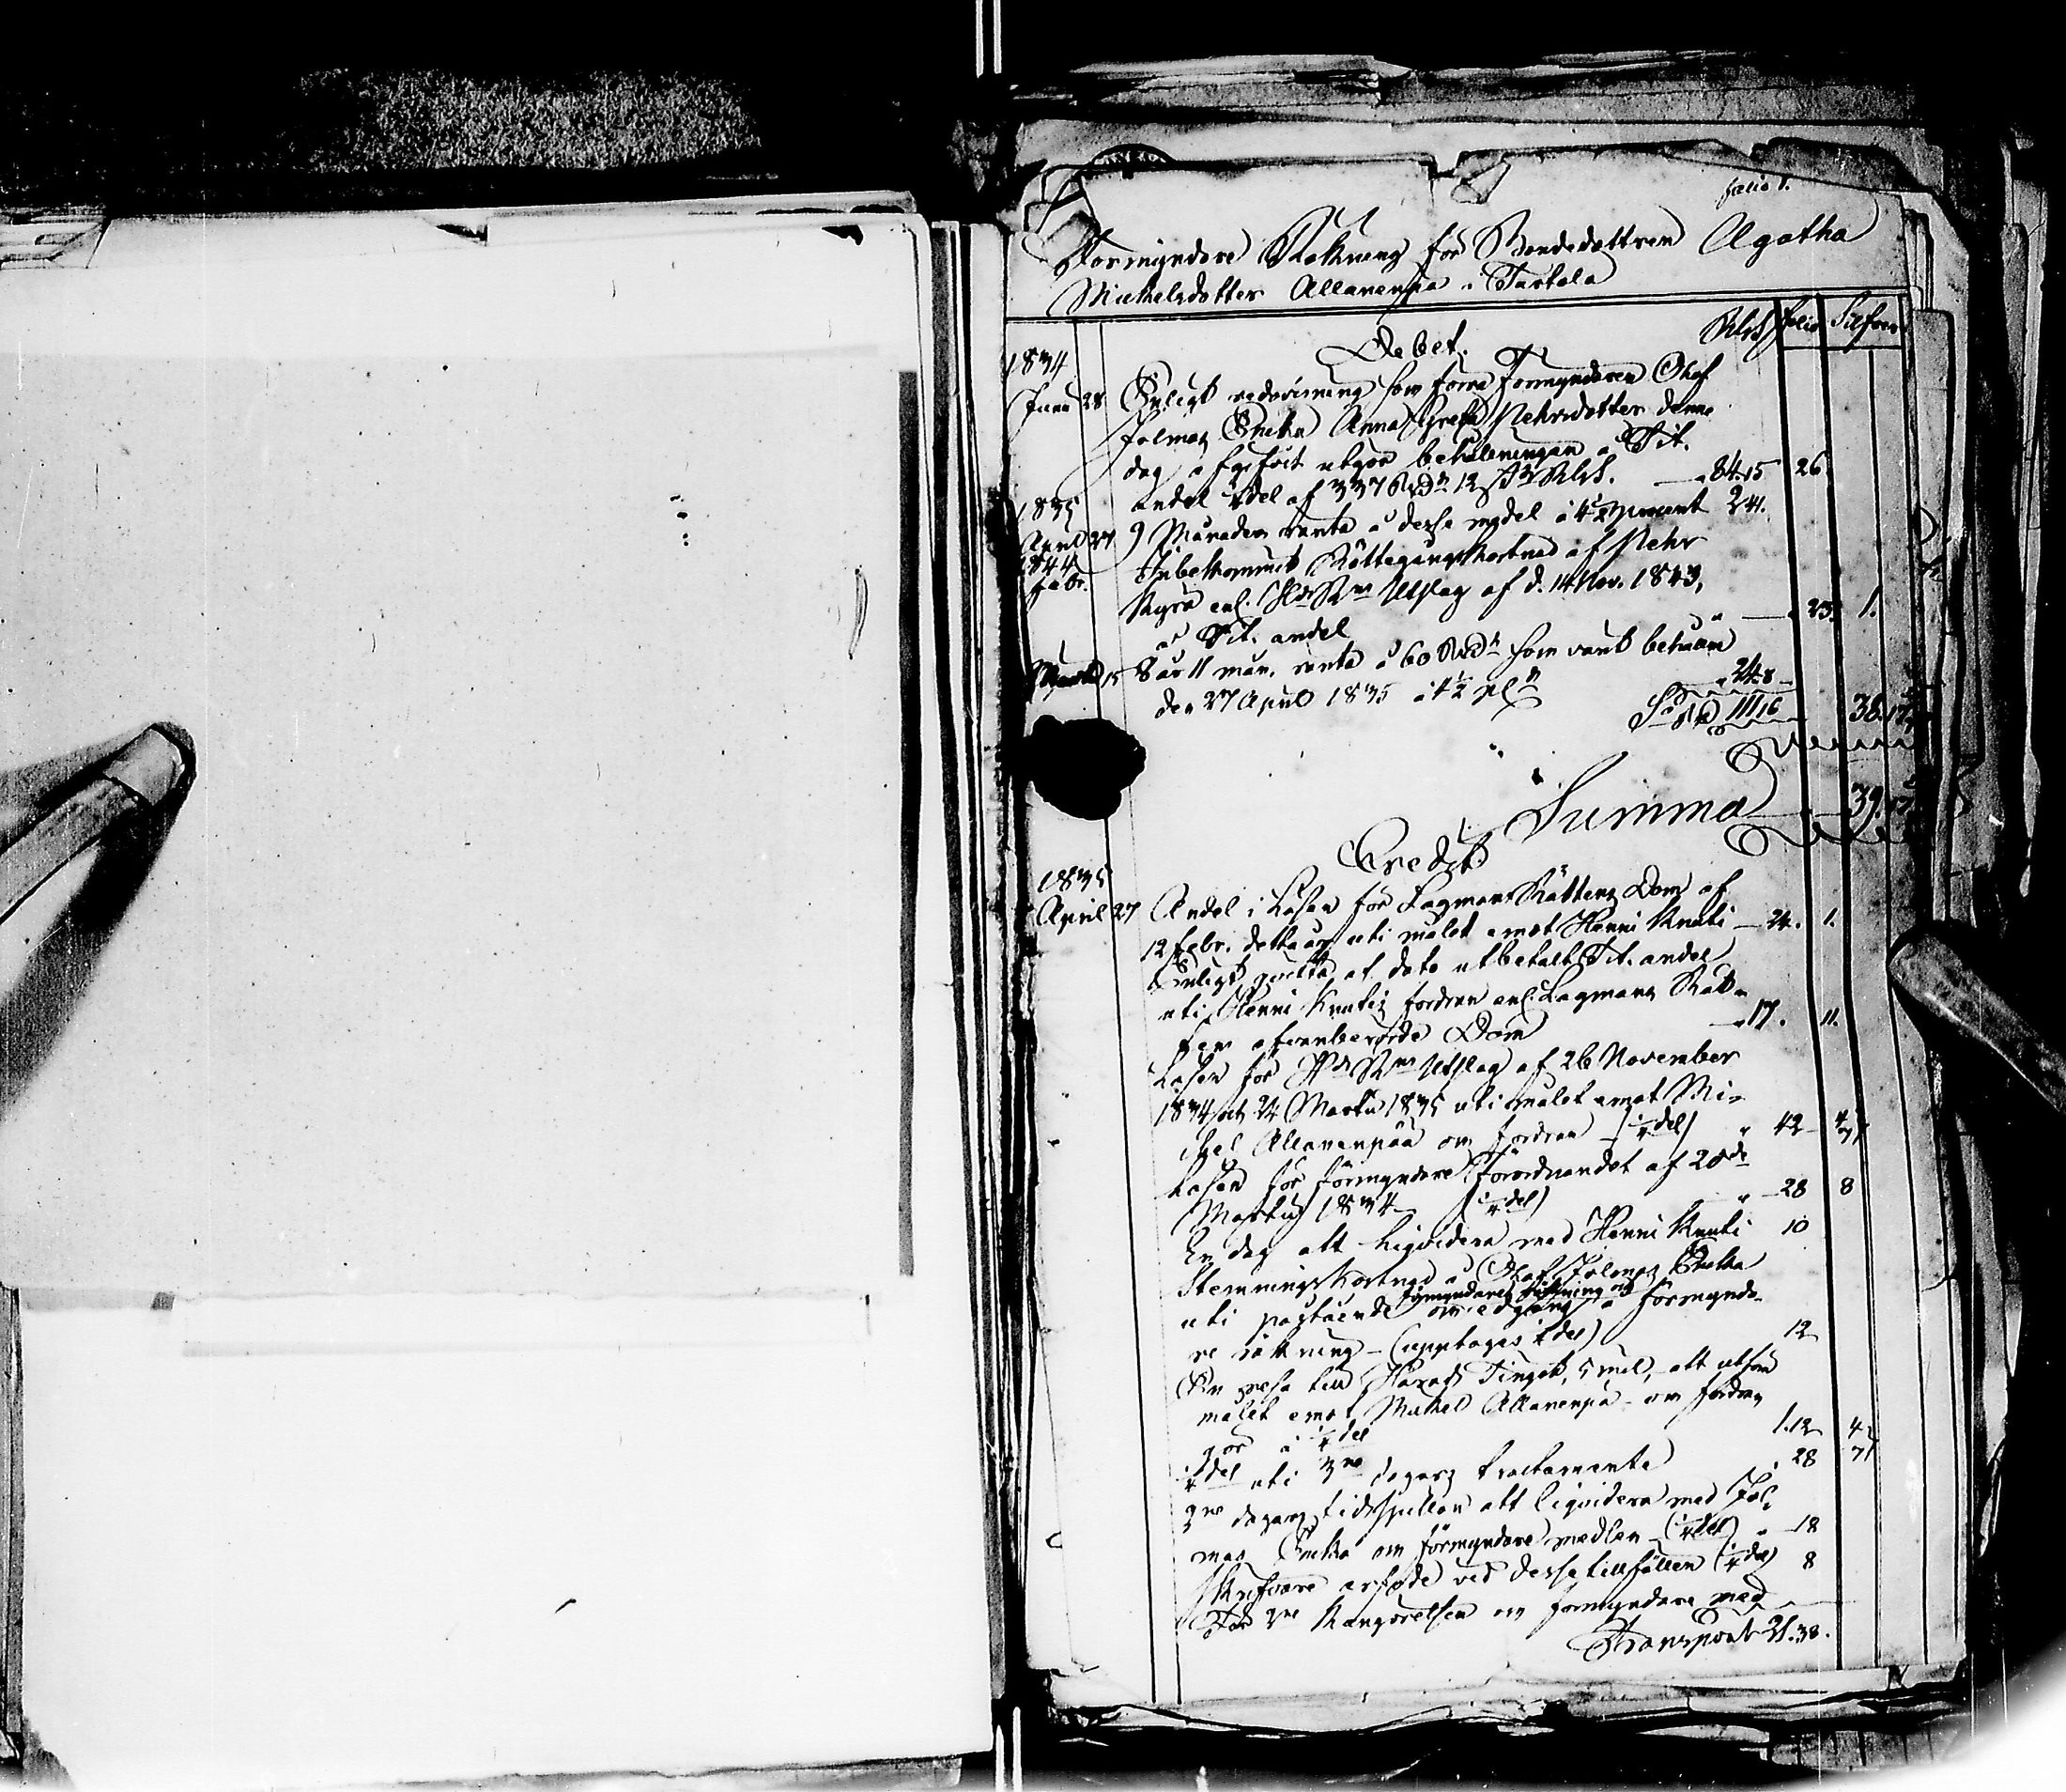 folio 1.
Förmyndare Räkning för Bondedottren Agatha
Michelsdotter Allanenpää i Tastula
RGS folio Silfver
Debet.
1834
Junii 28 Enligt redovisning som förra Förmyndaren Olof
Jolmas Enka Anna Greta Pehrsdotter denne
dag afgifvit utgör behållningen a Tit.
andel ¼del af 337 Rdr 12 RGS. 84.15 26
1835
April 27 9 Månaders ränta å desse medel a 4½ procent 2 41.
1844
Febr. Inbekommit Rättegångskostnad af Pehr
enl. HdsRns Utslag af d. 14 Nov. 1843,
a Tit. andel 23. 1.
Martii 15 8 år 11 mån. ränta å 60 Rdr som varit behållen
den 27 April 1835 a 4½ pC 24.8
Sa Rd 111 16 38.17
Summa 39.17
Credit
1835
April 27 Andel i Lösen för Lagmans Rättens Dom af
12 Febr. detta år uti målet emot Henni Knuti 24. 1.
Enligt quitto af dato utbetalt Tit. andel
uti Henni Knutis fordran enl. Lagmans Rät-
tens ofvanberörde Dom 17. 11.
Lösen för HdsRns Utslag af 26 November
1834 och 24 Martii 1835 uti målet emot Mi-
chel Allanenpää om fordran (¼del) 42
Lösen för Förmyndare Förordnandet af 20de
Martii 1834 (¼del) 28 8
En dag att liqvidera med Henni Knuti 10
Stemningskostnad å Olof Jolmas Enka
uti påstående förmyndare räkning och
om edgång å förmynda-
re räkning (upptages ¼del) 12
En resa till Härads Tinget, 5 mil, att utföra
målet emot Michel Allanenpä om fordran
gör à ¼del 1.12 4
¼del uti 3ne dagars tractamente 28 7
3ne dagars tidspillan att liqvidera med Jol-
mas Enka om förmyndare medlen (¼del) 18
Skrifvare arfvode vid desse tillfällen (¼del) 8
För 3ne Kungörelsen om förmyndare med-
Transport 21.38.